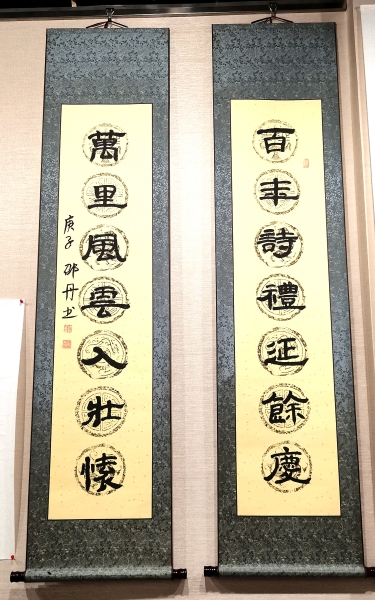 百年詩禮延餘慶
萬里風雲入壯懷
庚子 邵丹书